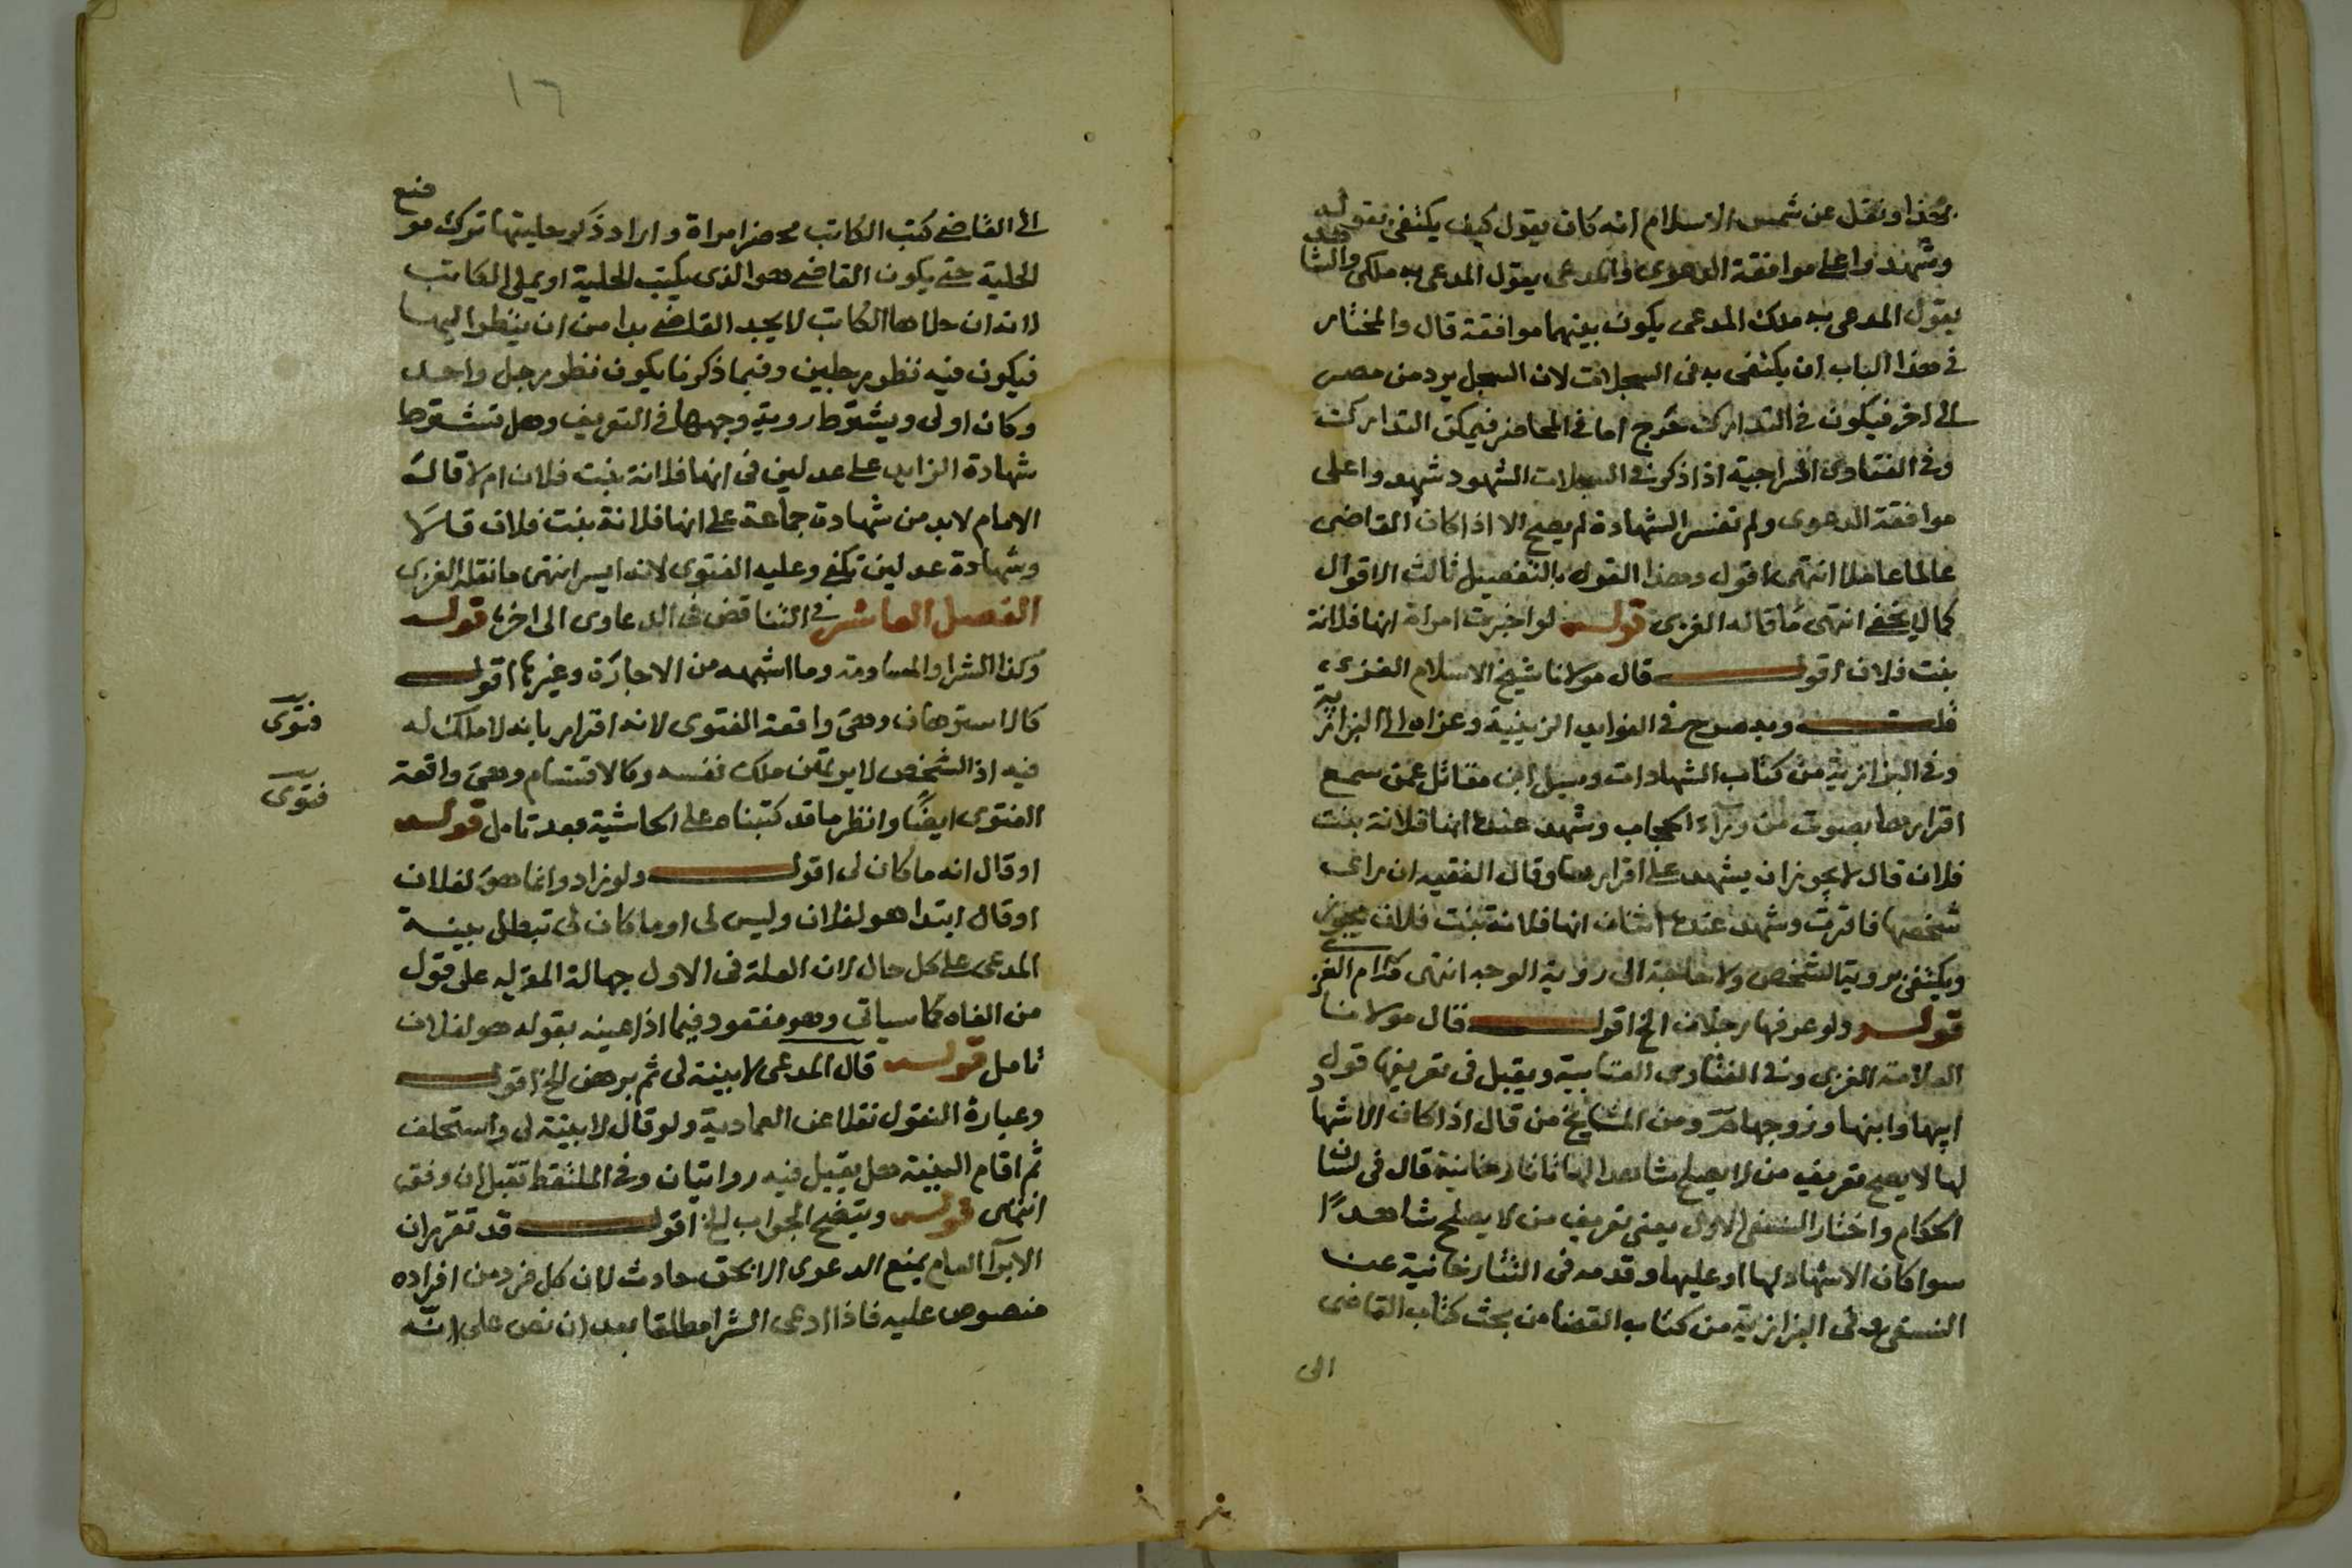 بهذا ونقل عن شمس الاسلام انه كان يقول كيف يكتفى بقوله
وشهدوا على موافقة الدعوى والمدعى يقول المدعى به ملكى والشاهد
يقول المدعى به ملك المدعى يكون بينهما موافقة قال والمختار
في هذا الباب ان يكتفى به في السجلات لان السجل يرد من مصر
الى اخر فيكون في التدارك حرج اما في المحاضر فيمكن التدارك
وفي الفتاوى السراجية اذا ذكر في السجلات الشهود شهدوا على
موافقة الدعوى ولم تفسر الشهادة لم يصح الا اذا كان القاضى
عالما عاملا انتهى اقول وهذا القول بالتفصيل ثالث الاقوال
كما لا يخفى انتهى ما قاله الغزى قوله لو اخبرت امراة انها فلانة
بنت فلان اقول قال مولانا شيخ الاسلام الغزى
قلت وبه صرح في الفوايد الزينية وعزاه الى البزازية
وفي البزازية من كتاب الشهادات وسيل ابن مقاتل عمن سمع
اقرارها بصوت من ورآء الحجاب وشهد عنده انها فلانة بنت
فلان قال لا يجوز ان يشهد على اقرارها وقال الفقيه ان راى
شخصها فاقرت وشهد عنده اثنان انها فلانة بنت فلان يجوز
ويكتفى بروية الشخص ولا حاجة الى روية الوجه انتهى كلام الغزى
قوله ولو عرفها رجلان الخ اقول قال مولانا
العلامة الغزى وفي الفتاوى العتابية ويقبل في تعريفها قول
ابيها وابنها وزوجها ومن المشايخ من قال اذا كان الاشهاد
لها لا يصح تعريف من لا يصلح شاهدا لها تاتارخانية قال في لسان
الحكام واختار النسفى الاول يعنى تعريف من لا يصلح شاهدًا
سوا كان الاشهاد لها او عليها وقدمه في التتارخانية عن
النسفى وفي البزازية من كتاب القضا من بحث كتاب القاضى
الى
١٦
الى القاضى كتب الكاتب محضر امراة واراد ذكر حليتها ترك موضع
الحلية حتى يكون القاضى هو الذى يكتب الحلية او يملى الكاتب
لانه ان حلاها الكاتب لا يجد القاضى بدا من ان ينظر اليها
فيكون فيه نظر رجلين وفيما ذكرنا يكون نظر رجل واحد
وكان اولى ويشترط روية وجهها في التعريف وهل تشترط
شهادة الزايد على عدلين في انها فلانة بنت فلان ام لا قال
الامام لابد من شهادة جماعة على انها فلانة بنت فلان قالا
وشهادة عدلين تكفى وعليه الفتوى لانه ايسر انتهى ما نقله الغزى
الفصل العاشر في التناقض في الدعاوى الى اخره قوله
وكذا الشرا والمساومة وما اشبهه من الاجارة وغيرها اقول
كالاسترهان وهى واقعة الفتوى لانه اقرار بانه لا ملك له
فيه اذ الشخص لا يرتهن ملك نفسه وكالاقتسام وهى واقعة
الفتوى ايضًا وانظر ما قد كتبناه على الحاشية بعد تامل قوله
او قال انه ما كان لى اقول ولو زاد وانما هو لفلان
او قال ابتدا هو لفلان وليس لى او ما كان لى تبطل بينة
المدعى على كل حال لان العلة في الاول جهالة المقر له على قول
من الغاه كما سياتى وهو مفقود فيما اذا عينه بقوله هو لفلان
تامل قوله قال المدعى لا بينة لى ثم برهن الخ اقول
وعبارة النقول نقلا عن العمادية ولو قال لا بينة لى واستحلف
ثم اقام البينة هل يقبل فيه روايتان وفي الملتقط تقبل ان وفق
انتهى قوله ويتضح الجواب الخ اقول قد تقرر ان
الابرآ العام يمنع الدعوى الا بحق حادث لان كل فرد من افراده
منصوص عليه فاذا ادعى الشرا مطلقا بعد ان نص على انه
فتوى
فتوى